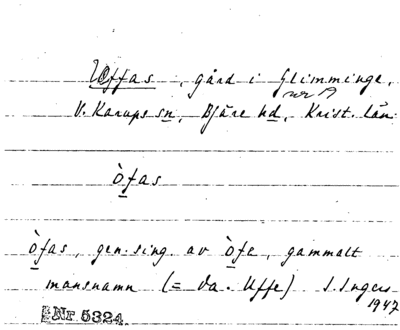 Uffas, gård i Glimminge,
nr 19
V. Karups sn, Bjäre hd, Krist. län.
òfas
òfas, gen. sing. av òfe, gammalt
mansnamn (= da. Uffe) S. Ingers
1947
Nr. 5324.